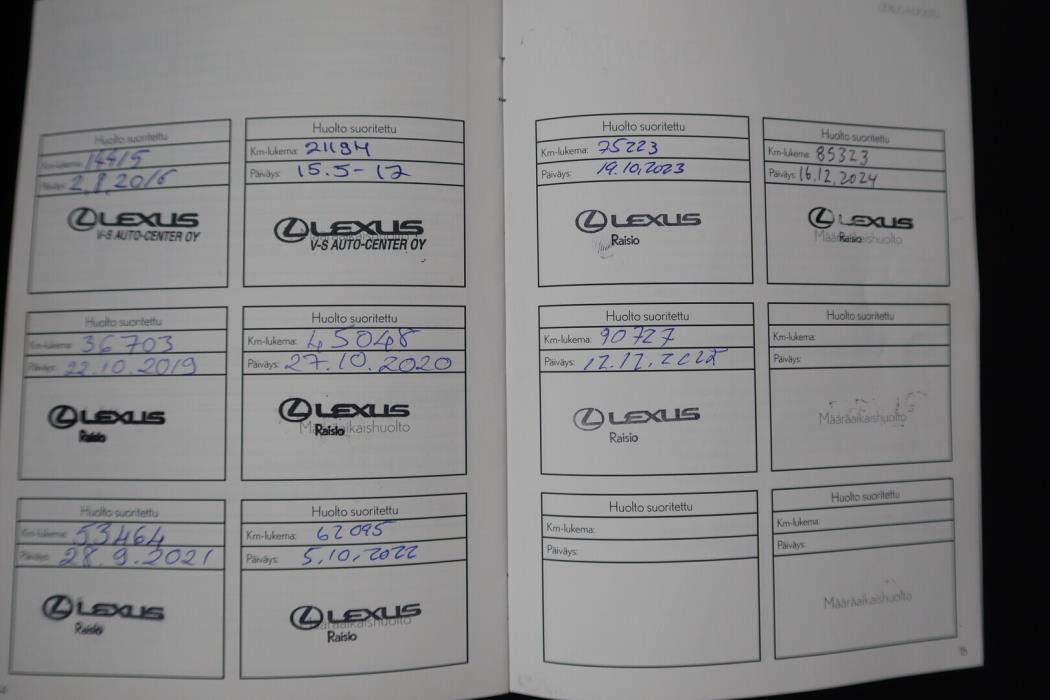 Huolto suoritettu
Km-lukema: 14415
Päiväys: 2.8.2016
LEXUS
V-S AUTO-CENTER OY
Huolto suoritettu
Km-lukema: 21194
Päiväys: 15.5-17
LEXUS
V-S AUTO-CENTER OY
Huolto suoritettu
Km-lukema: 36703
Päiväys: 22.10.2019
LEXUS
Raisio
Huolto suoritettu
Km-lukema: 45048
Päiväys: 27.10.2020
LEXUS
Määräaikaishuolto
Raisio
Huolto suoritettu
Km-lukema: 53464
Päiväys: 28.9.2021
LEXUS
Raisio
Huolto suoritettu
Km-lukema: 62095
Päiväys: 5.10.2022
LEXUS
Määräaikaishuolto
Raisio
Huolto suoritettu
Km-lukema: 75223
Päiväys: 19.10.2023
LEXUS
Raisio
Huolto suoritettu
Km-lukema: 85323
Päiväys: 16.12.2024
LEXUS
Määräaikaishuolto
Raisio
Huolto suoritettu
Km-lukema: 90727
Päiväys: 12.12.2025
LEXUS
Raisio
Huolto suoritettu
Km-lukema:
Päiväys:
Määräaikaishuolto
Huolto suoritettu
Km-lukema:
Päiväys:
Huolto suoritettu
Km-lukema:
Päiväys:
Määräaikaishuolto
15